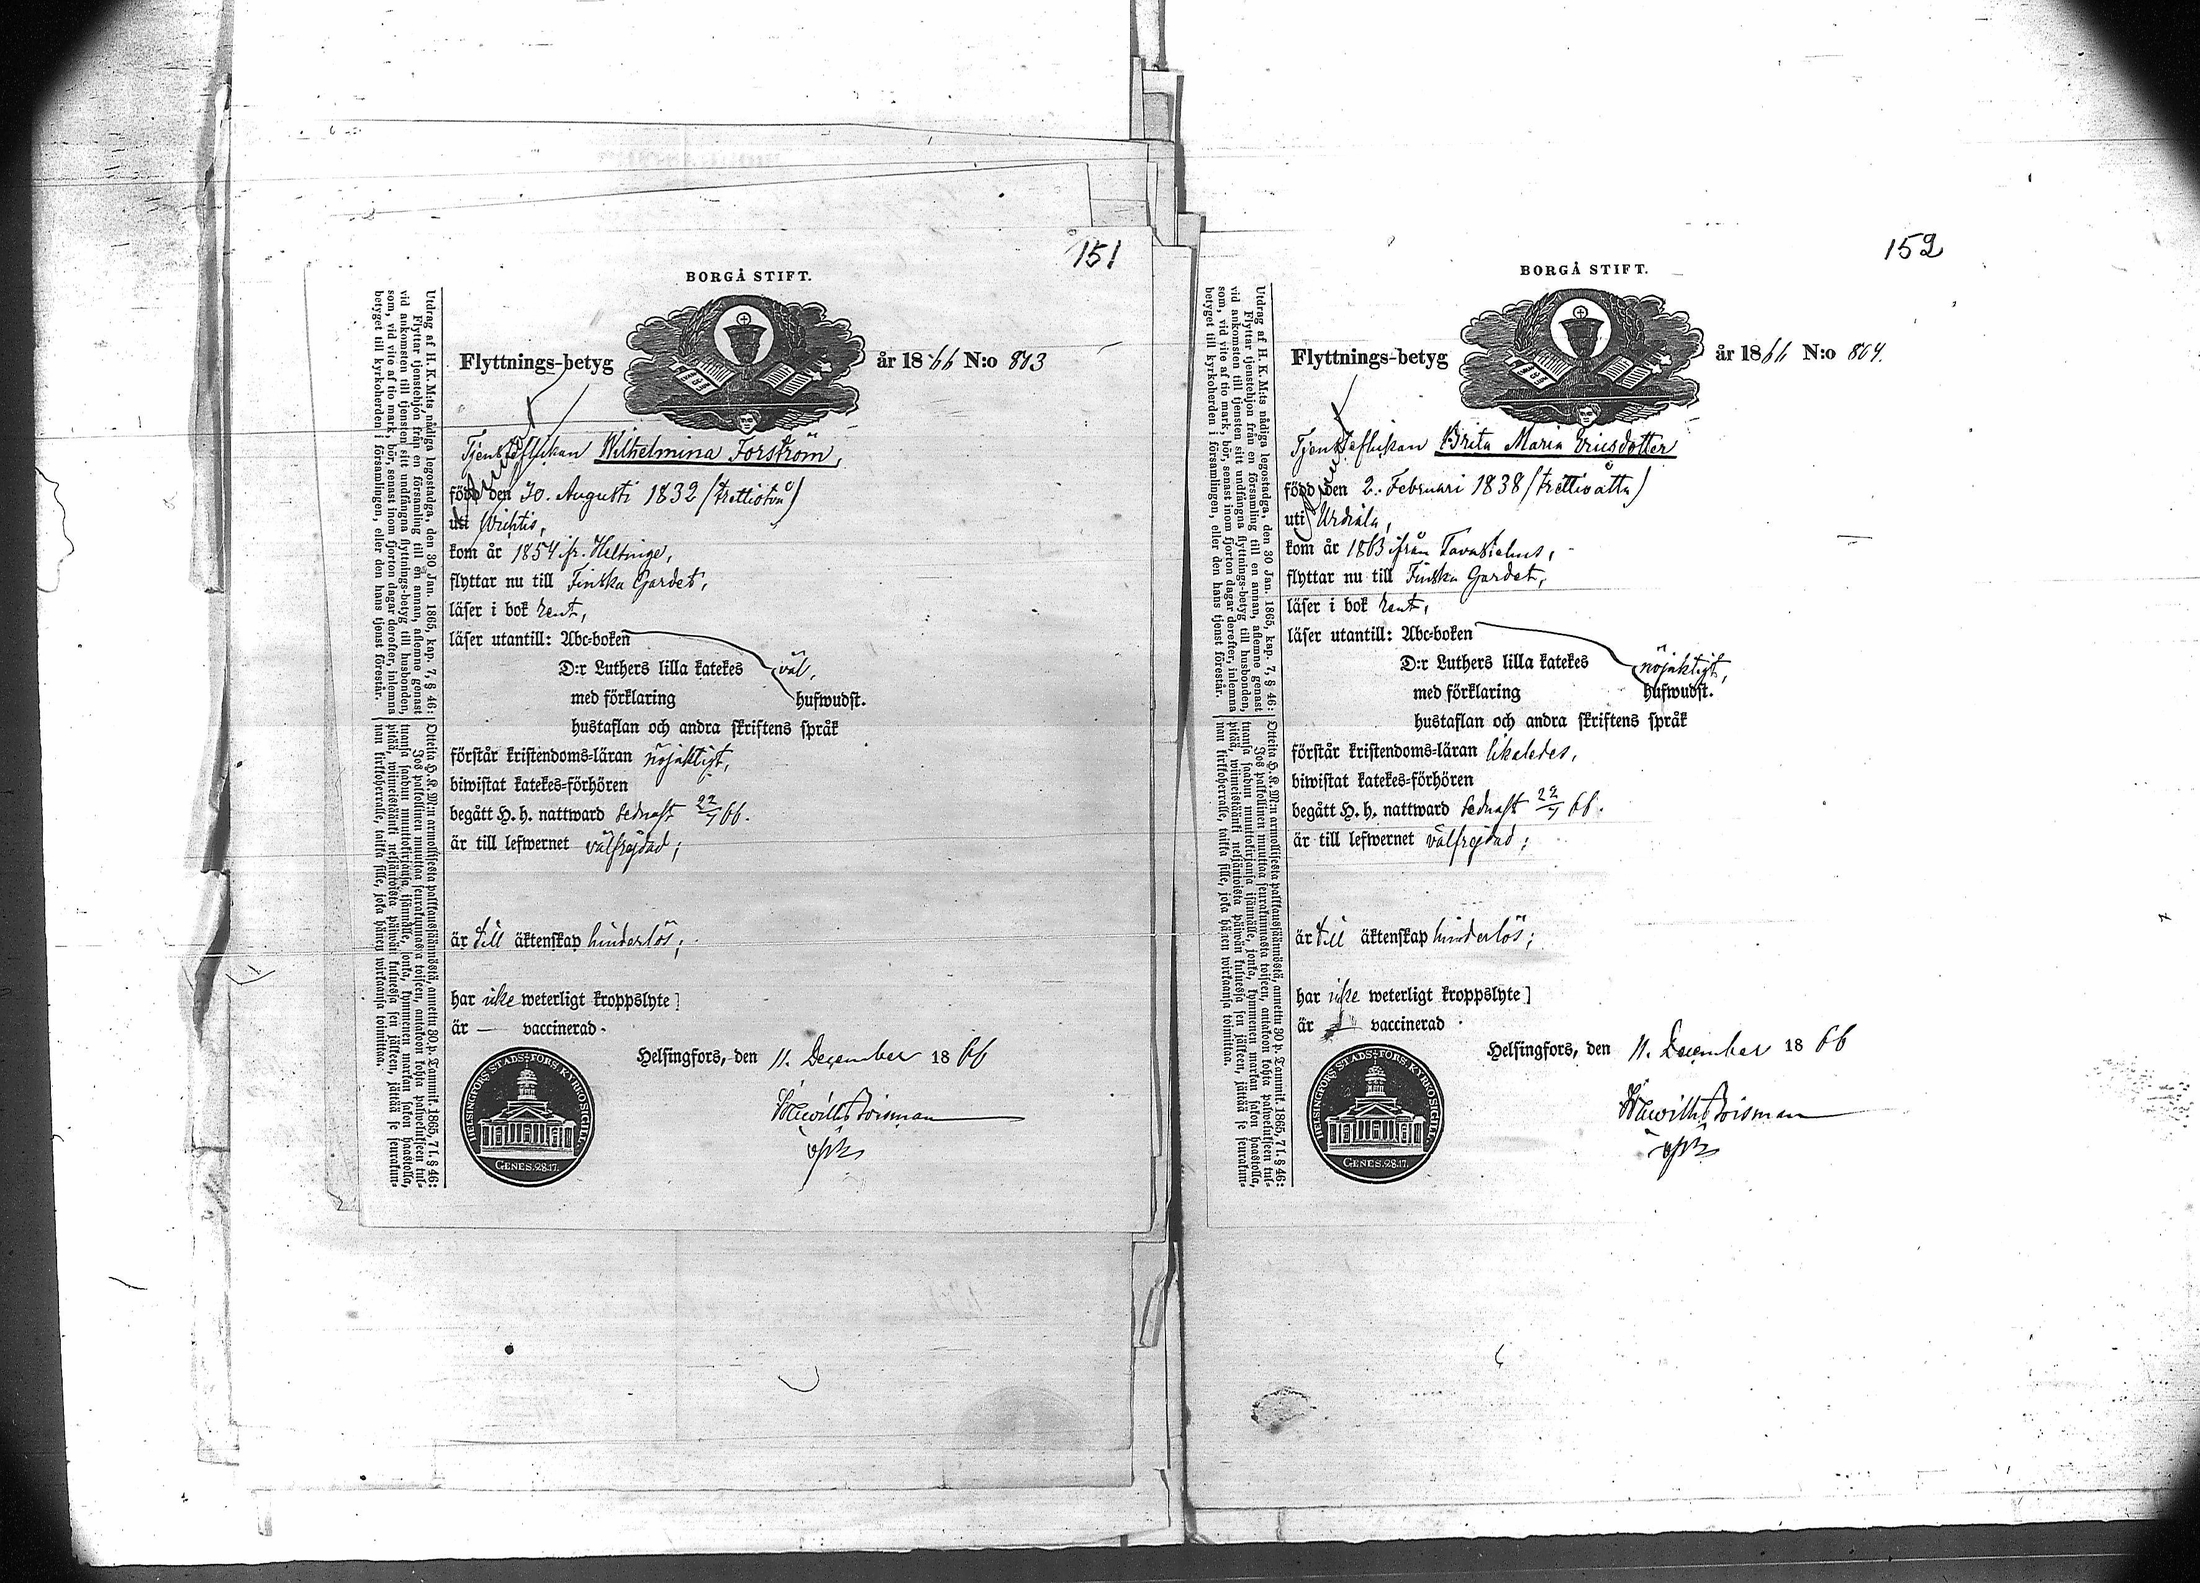 151
BORGÅ STIFT.
Flyttnings-betyg år 1866 N:o 803
Tjensteflickan Wilhelmina Forström,
född den 30. Augusti 1832 (trettiotvå)
uti Wichtis,
kom år 1854 fr. Helsinge,
flyttar nu till Finska Gardet,
läser i bok rent,
läser utantill: Abc-boken
D:r Luthers lilla katekes väl,
med förklaring hufwudst.
hustaflan och andra skriftens språk
förstår kristendoms-läran nöjaktigt,
biwistat katekes-förhören
begått H. h. nattward sednast 22/7 66.
är till lefwernet välfrejdad;
är till äktenskap hinderlös;
har icke weterligt kroppslyte]
är — vaccinerad.
Helsingfors, den 11. December 1866
HELSINGFORS STADS-FÖRS: KYRKOSIGILL.
GENES. 28.17.
Utdrag af H. K. M:ts nådiga legostadga, den 30 Jan. 1865, kap. 7, § 46:
Flyttar tjenstehjon från en församling till en annan, aflemne genast
vid ankomsten till tjensten sitt undfångna flyttnings-betyg till husbonden,
som, vid vite af tio mark, bör, senast inom fjorton dagar derefter, inlemna
betyget till kyrkoherden i församlingen, eller den hans tjenst förestår.
Otteita H. K. M:n armollisesta palkkaussäännöstä, annettu 30 p. Tammik. 1865, 7 l. § 46:
Jos palkollinen muuttaa seurakunnasta toiseen, antakoon kohta palwelukseen tul-
tuansa saadun muuttokirjansa isännälle, jonka, kymmenen markan sakon haastolla,
pitää, wiimeistäänki neljäntoista päiwän kuluessa sen jälkeen, jättää se seurakun-
nan kirkkoherralle, taikka sille, joka hänen wirkaansa toimittaa.
152
BORGÅ STIFT.
Flyttnings-betyg år 1866 N:o 804.
Tjensteflickan Brita Maria Ericsdotter
född den 2. Februari 1838 (trettioåtta)
uti Urdiala,
kom år 1863 ifrån Tavastehus,
flyttar nu till Finska Gardet,
läser i bok rent,
läser utantill: Abc-boken
D:r Luthers lilla katekes nöjaktigt,
med förklaring hufwudst.
hustaflan och andra skriftens språk
förstår kristendoms-läran likaledes,
biwistat katekes-förhören
begått H. h. nattward sednast 22/7 66.
är till lefwernet välfrejdad;
är till äktenskap hinderlös;
har icke weterligt kroppslyte]
är — vaccinerad.
Helsingfors, den 11. December 1866
HELSINGFORS STADS-FÖRS: KYRKOSIGILL.
GENES. 28.17.
Utdrag af H. K. M:ts nådiga legostadga, den 30 Jan. 1865, kap. 7, § 46:
Flyttar tjenstehjon från en församling till en annan, aflemne genast
vid ankomsten till tjensten sitt undfångna flyttnings-betyg till husbonden,
som, vid vite af tio mark, bör, senast inom fjorton dagar derefter, inlemna
betyget till kyrkoherden i församlingen, eller den hans tjenst förestår.
Otteita H. K. M:n armollisesta palkkaussäännöstä, annettu 30 p. Tammik. 1865, 7 l. § 46:
Jos palkollinen muuttaa seurakunnasta toiseen, antakoon kohta palwelukseen tul-
tuansa saadun muuttokirjansa isännälle, jonka, kymmenen markan sakon haastolla,
pitää, wiimeistäänki neljäntoista päiwän kuluessa sen jälkeen, jättää se seurakun-
nan kirkkoherralle, taikka sille, joka hänen wirkaansa toimittaa.